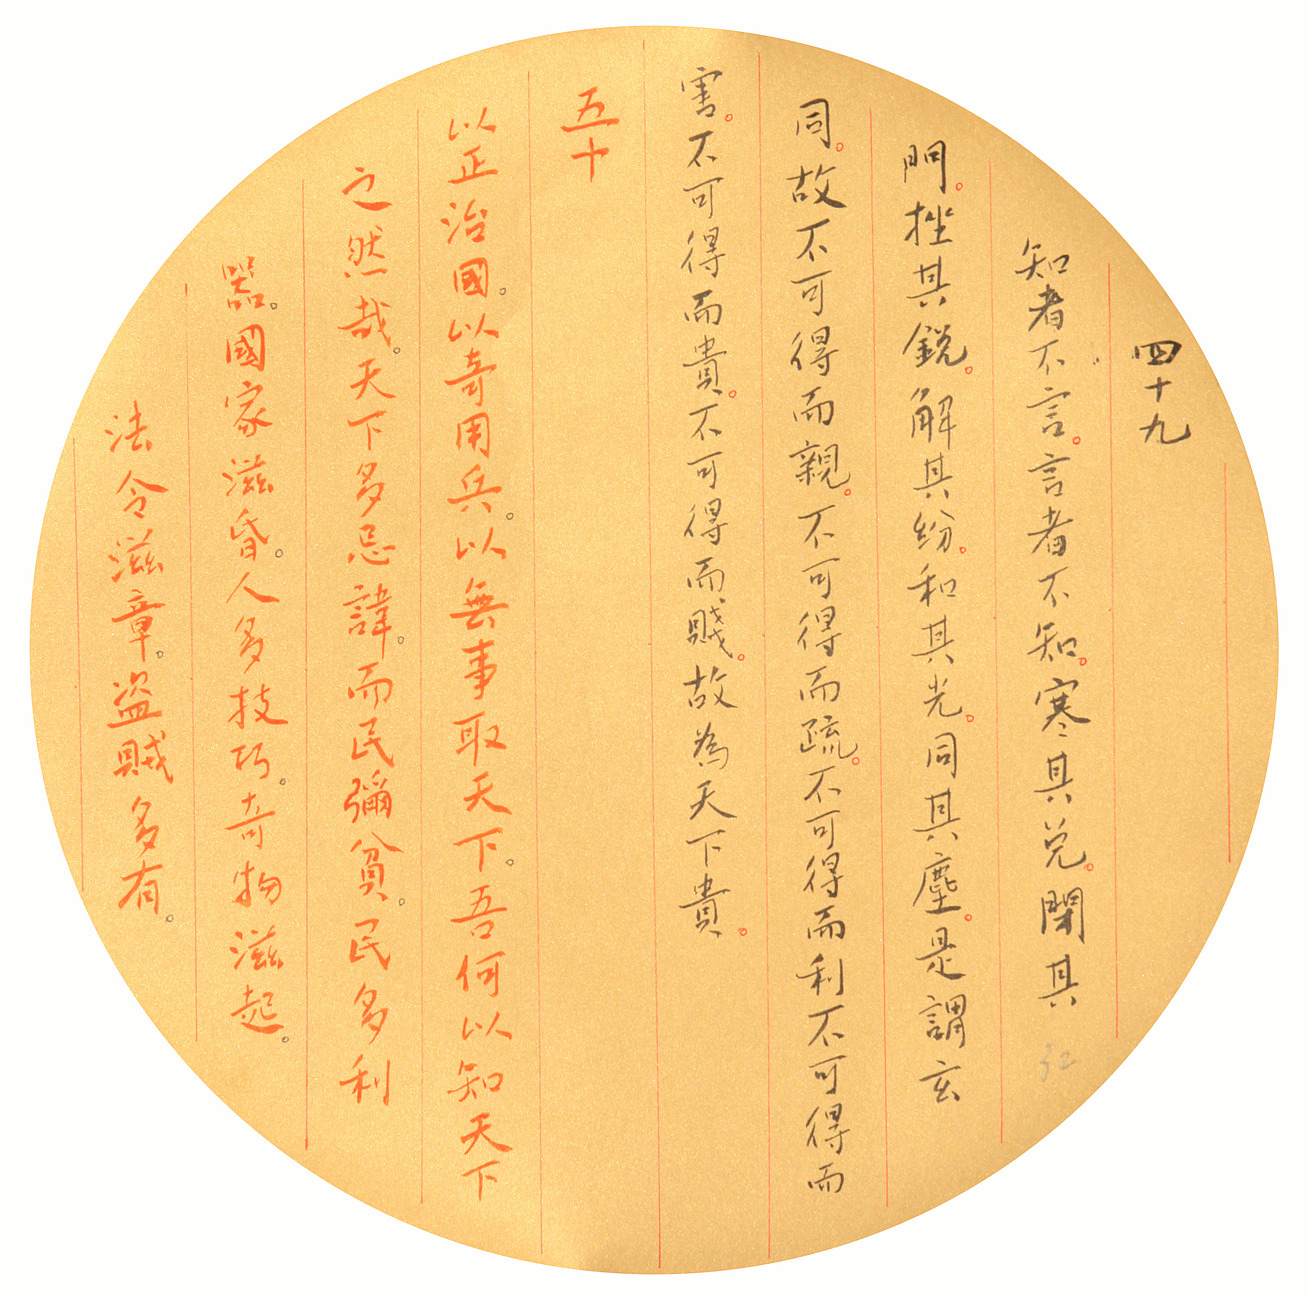 四十九
知者不言。言者不知。寒其兑。閉其
32
門。挫其銳。解其紛。和其光。同其塵。是謂玄
同。故不可得而親。不可得而疏。不可得而利不可得而
害。不可得而貴。不可得而賤。故為天下貴。
五十
以正治國。以奇用兵。以無事取天下。吾何以知天下
之然哉。天下多忌諱。而民彌貧。民多利
器。國家滋昏。人多技巧。奇物滋起。
法令滋章。盜賊多有。